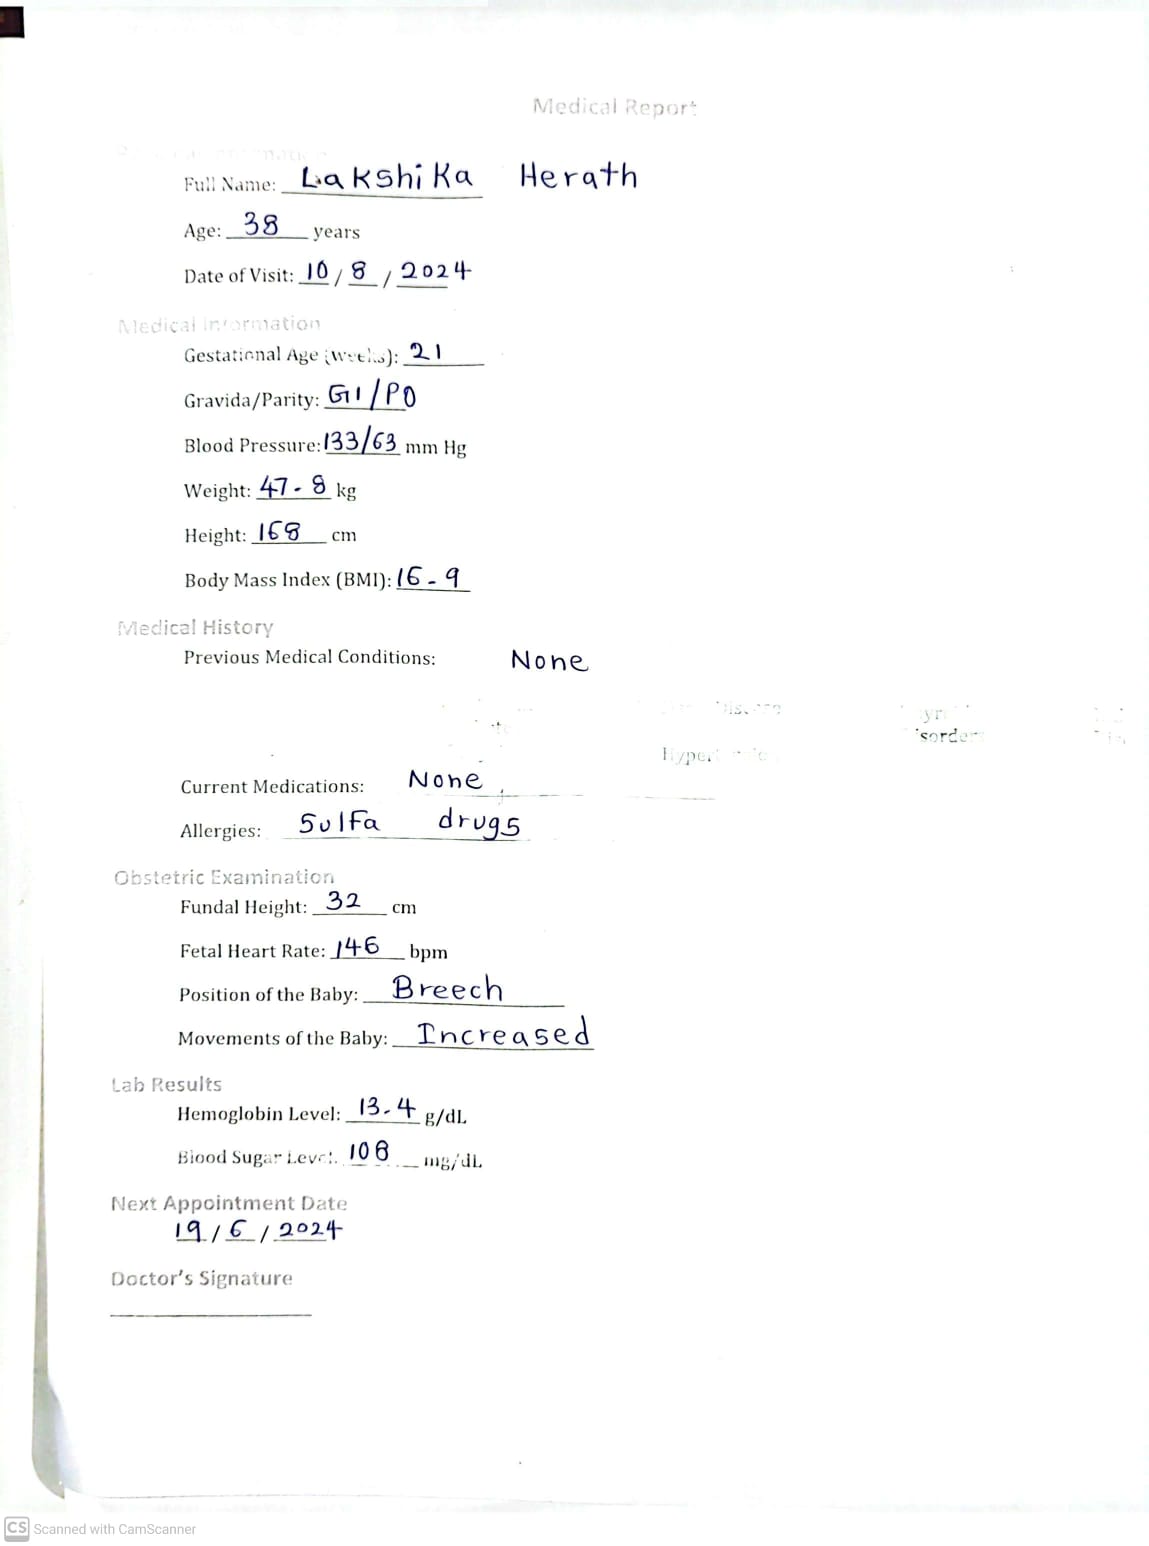 Medical Report
Full Name: Lakshika Herath
Age: 38 years
Date of Visit: 10/8/2024
Medical Information
Gestational Age (Weeks): 21
Gravida/Parity: G1/P0
Blood Pressure: 133/63 mm Hg
Weight: 47.8 kg
Height: 168 cm
Body Mass Index (BMI): 16.9
Medical History
Previous Medical Conditions: None
Current Medications: None
Allergies: Sulfa drugs
Obstetric Examination
Fundal Height: 32 cm
Fetal Heart Rate: 146 bpm
Position of the Baby: Breech
Movements of the Baby: Increased
Lab Results
Hemoglobin Level: 13.4 g/dL
Blood Sugar Level: 108 mg/dL
Next Appointment Date
19/6/2024
Doctor's Signature
CS Scanned with CamScanner